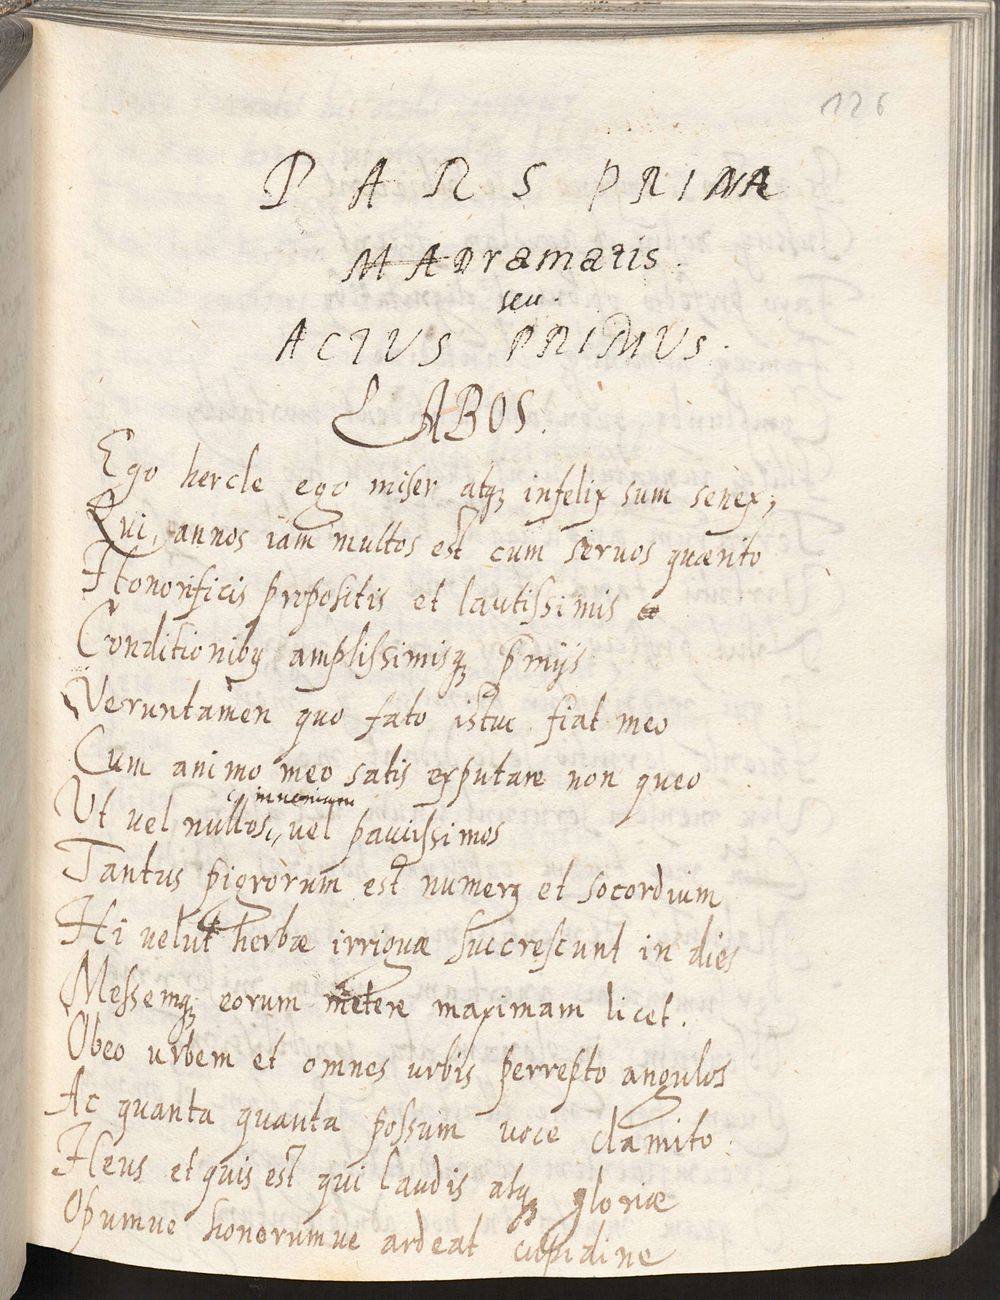 126
PARS PRIMA
MADramatis.
seu.
ACTUS PRIMUS.
LABOS.
Ego hercle ego miser atq; infelix sum senex,
Qui, annos iam multos est cum servos quærito
Honorificis propositis et lautissimis
Conditionibq amplissimisq; p̄mijs
Veruntamen quo fato istuc fiat meo
Cum animo meo satis exputare non queo
invenium
Ut vel nullos, vel paucissimos
Tantus pigrorum est numerq et socordium
Hi velut herbæ irriguæ succrescunt in dies
Messemq; eorum metere maximam licet.
Obeo urbem et omnes urbis perrepto angulos
Ac quanta quanta possum voce clamito.
Heus etquis est qui laudis atq; gloriæ
Opumve honorumve ardeat cupidine